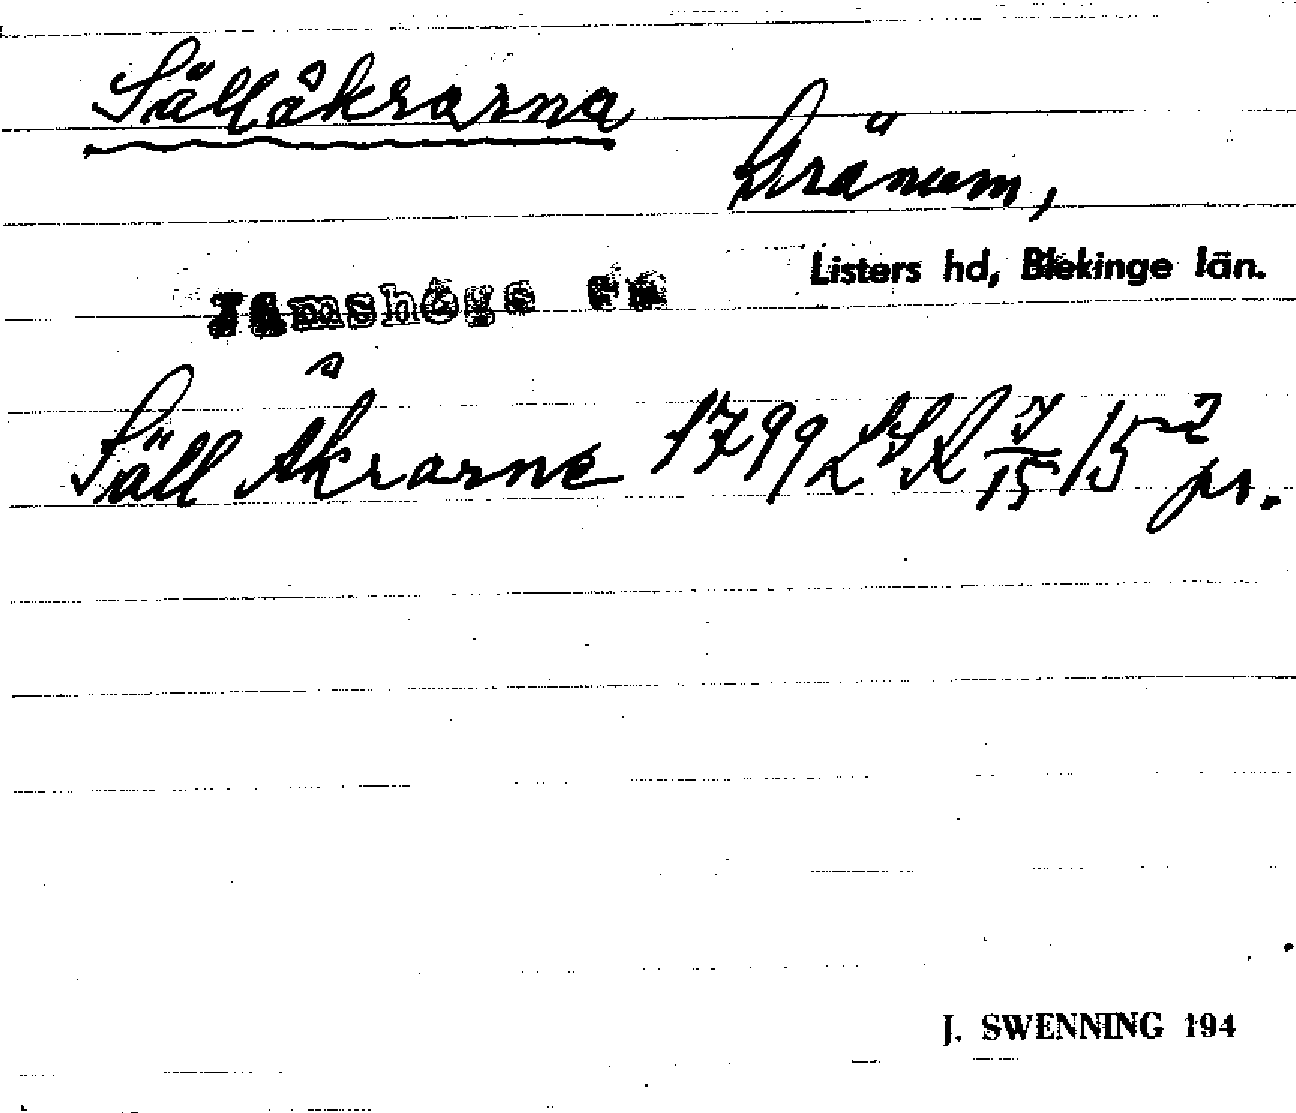 Sällåkrarna
Gränum,
Listers hd, Blekinge län.
Jämshögs sn
Säll Åkrarne 1799 LSR 7/15 15
J. SWENNING 194